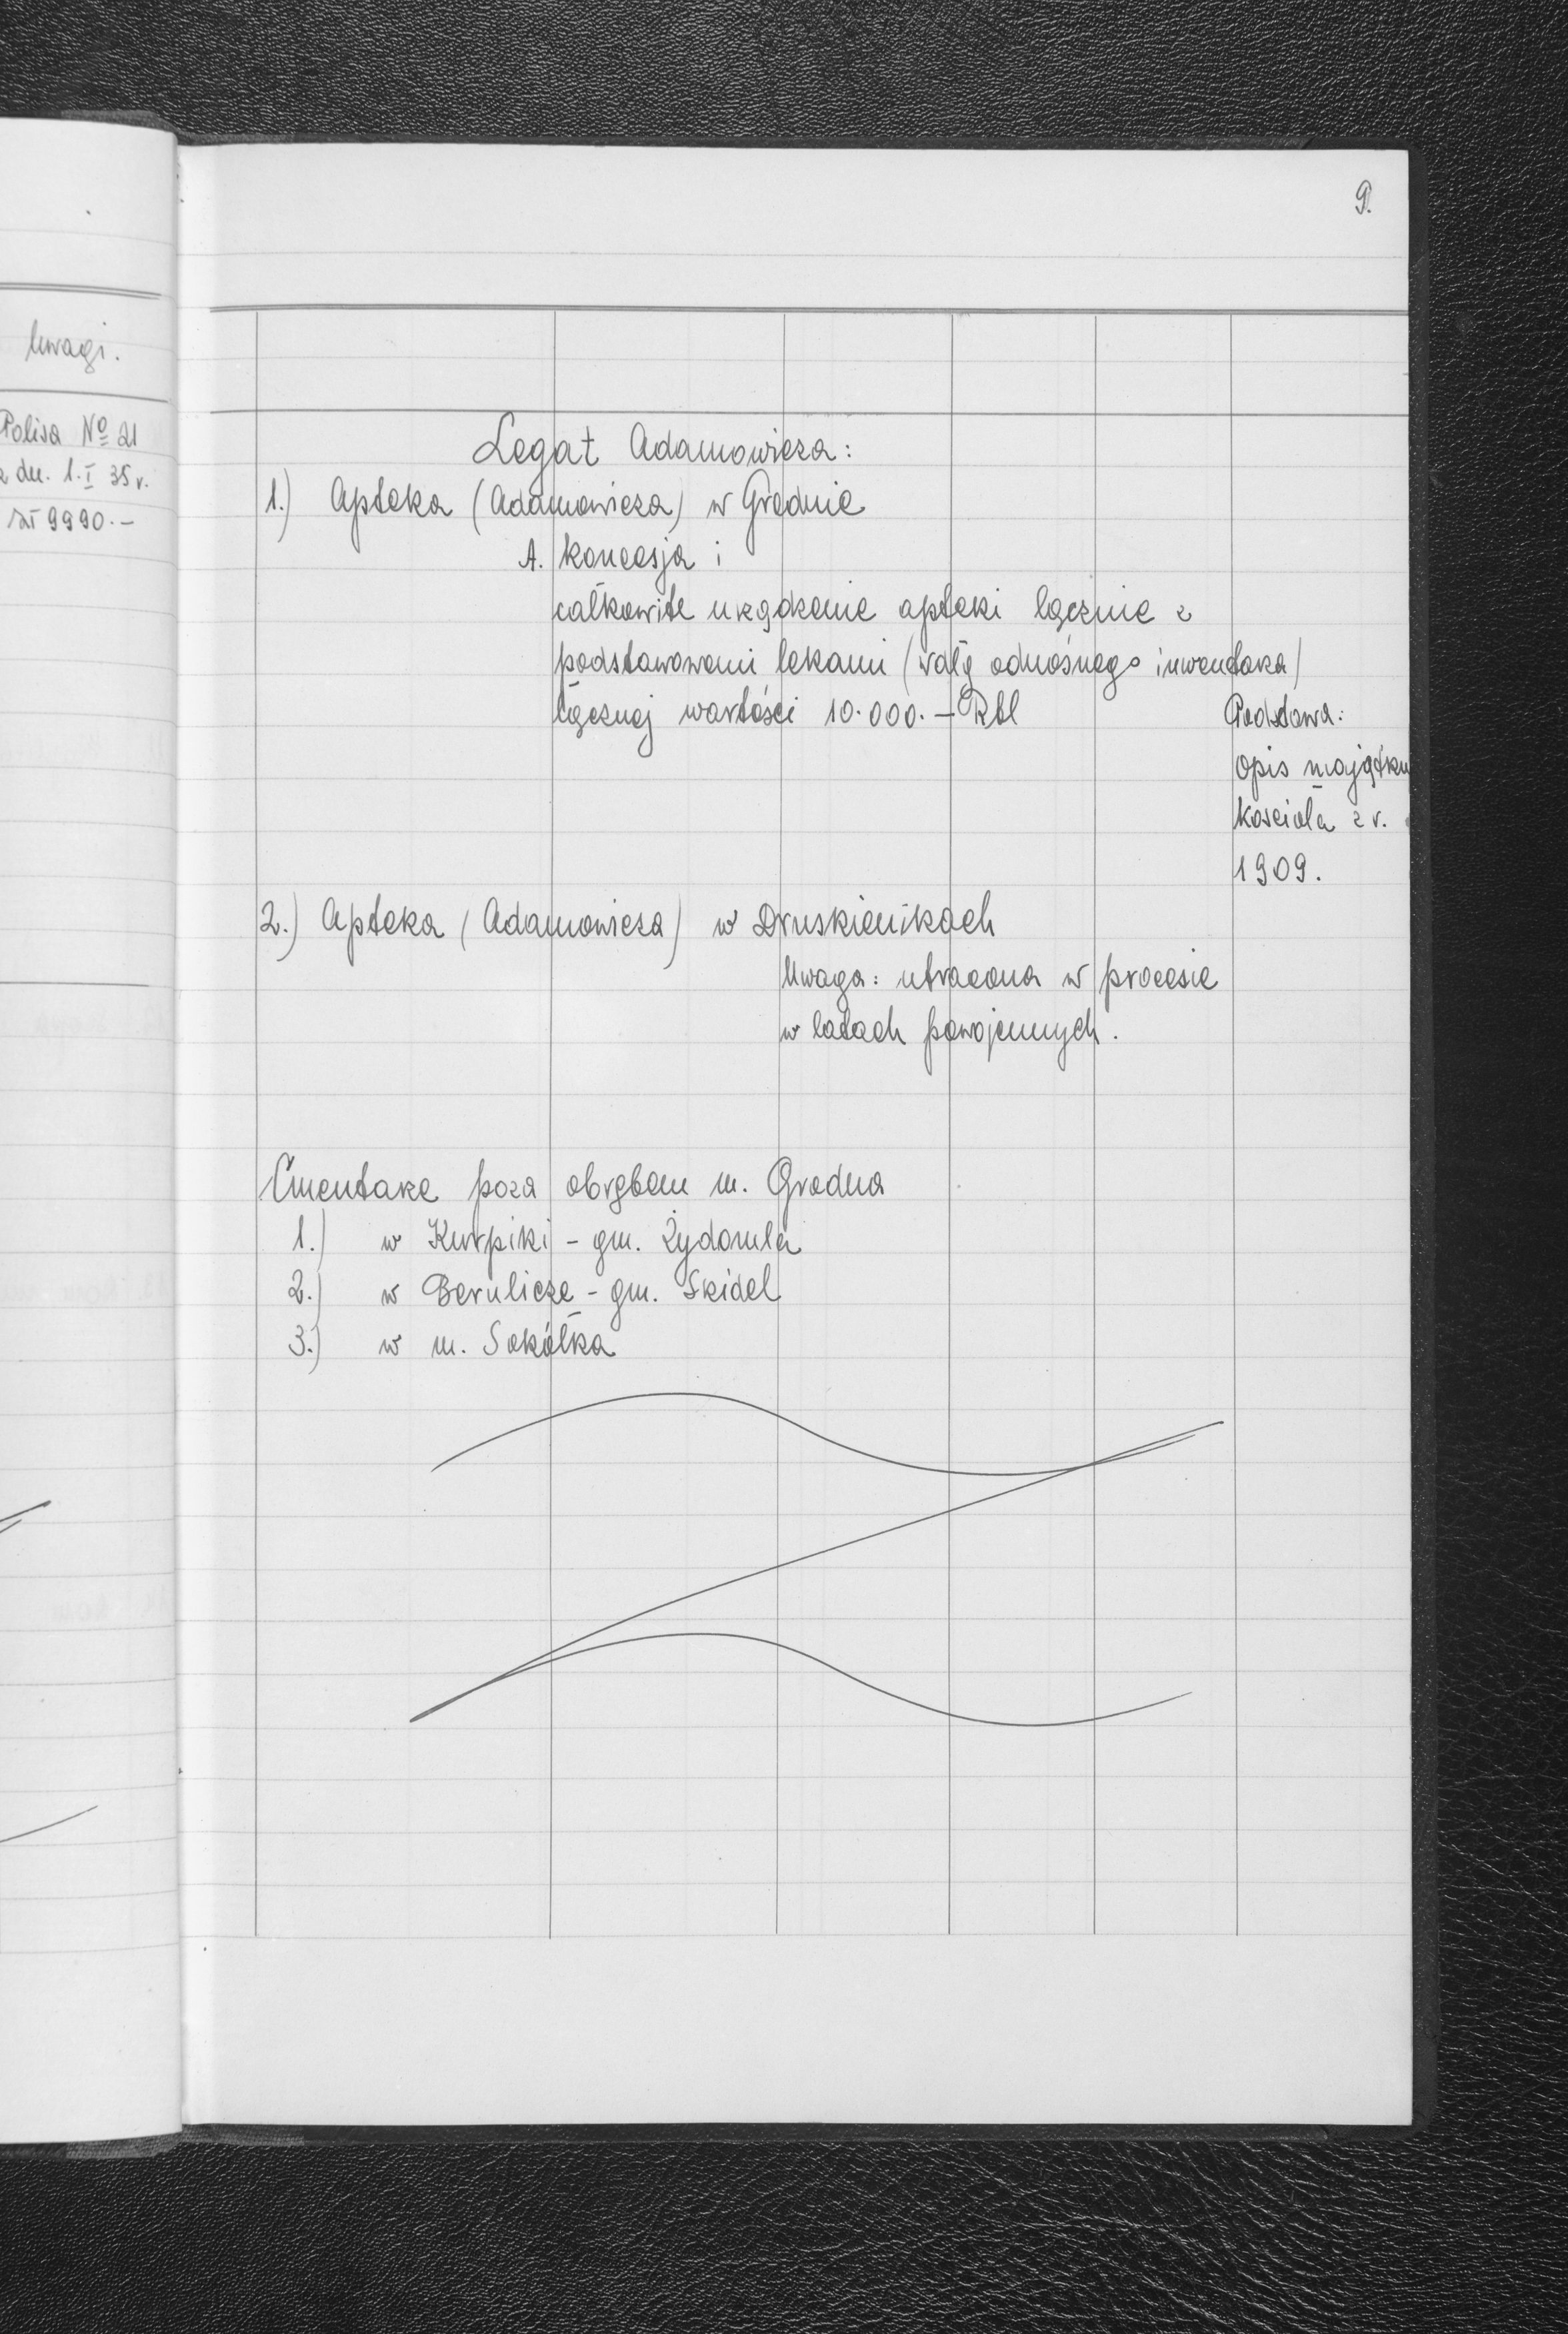 Uwagi.
Polisa № 21
z dn. 1.I 35 r.
zł 9990.—
9.
Legat Adamowicza:
1.) Apteka (Adamowicza) w Grodnie
A. koncesja i
całkowite urządzenie apteki łącznie z
podstawowemi lekami (wdłg odnośnego inwentarza)
łącznej wartości 10.000.— Rbl
Podstawa:
Opis majątku
kościoła z r.
1909.
2.) Apteka (Adamowicza) w Druskienikach
Uwaga: utracona w procesie
w latach powojennych.
Cmentarze poza obrębem m. Grodna
1.) w Kurpiki - gm. Żydomla
2.) w Berulicze - gm. Skidel
3.) w m. Sokółka